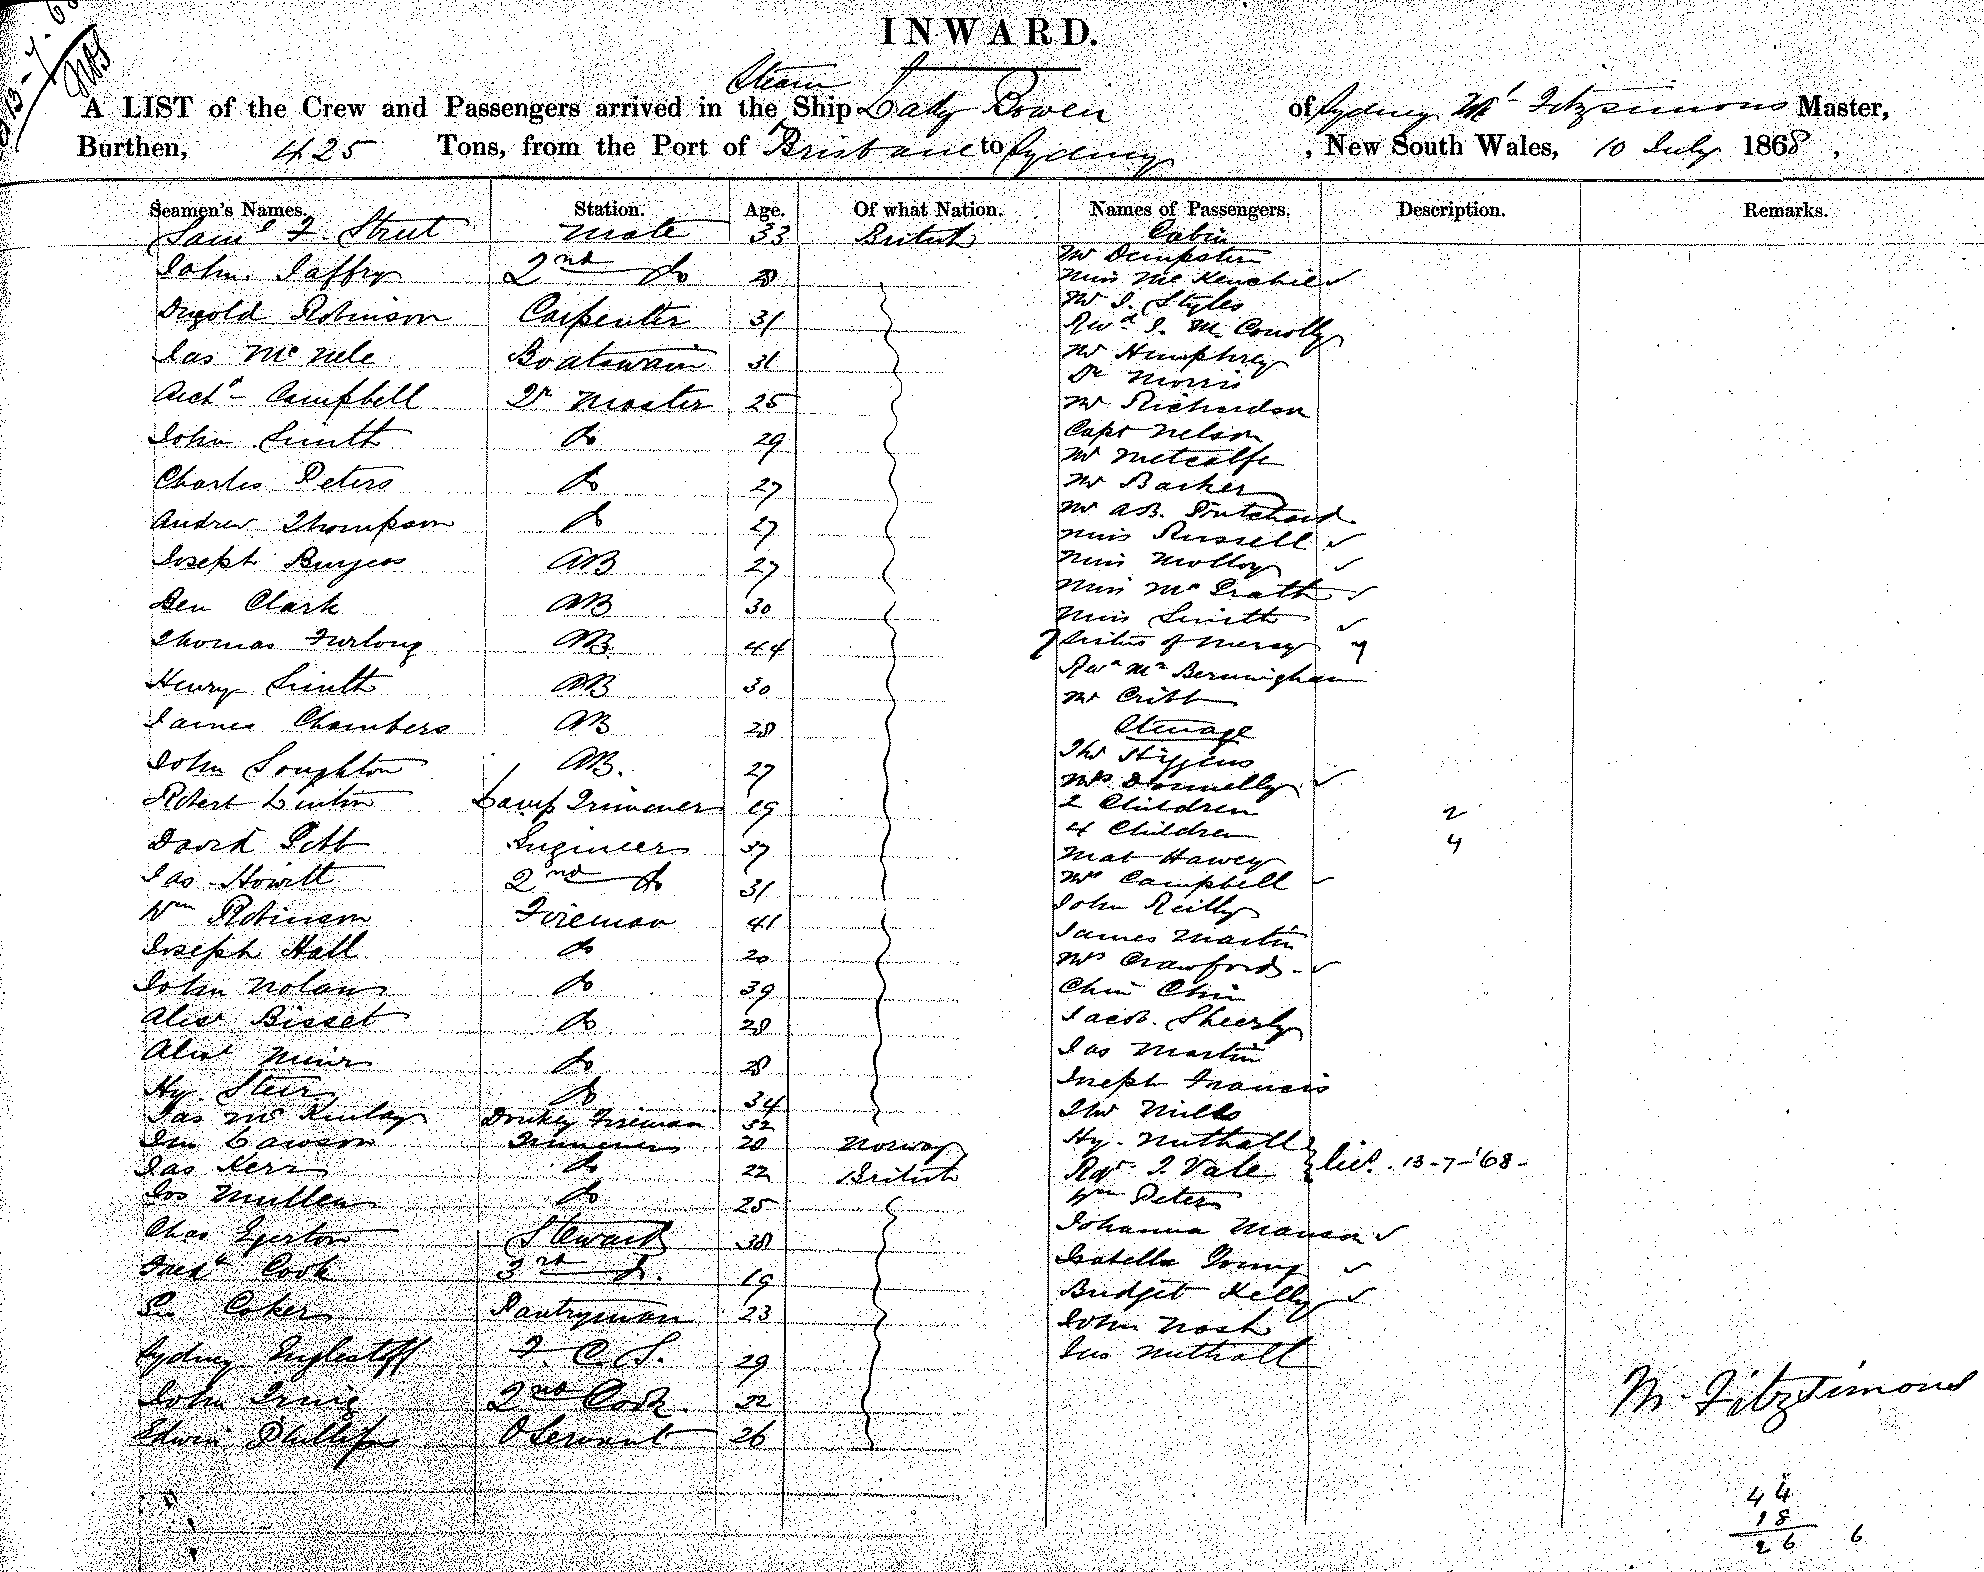 13-7-68
INWARD.
Steam
A LIST of the Crew and Passengers arrived in the Ship Lady Bowen of Sydney Mr Fitzsimons Master,
Burthen, 425 Tons, from the Port of Brisbane to Sydney, New South Wales, 10 July 1868,
Seamen's Names. Station. Age. Of what Nation. Names of Passengers. Description. Remarks.
Saml F. Strut Mate 33 British
John Jaffry 2nd Do 28
Robinson Carpenter 31
Jas McNele Boatswain 31
Archd Campbell Qr Master 25
John Smith Do 29
Charles Peters Do 27
Andrew Thompson Do 27
Joseph Burgess AB 27
Ben Clark AB 30
Thomas Furlong AB 44
Henry Smith AB 30
James Chambers AB 28
John Loughton AB. 27
Robert Linton Lamp Trimmer 19
David Pitt Engineer 37
Jas Howitt 2nd Do 31
Wm Robinson Fireman 41
Joseph Hall Do 20
John Nolan Do 39
Alexr Bisset Do 28
Alexr Muir Do 28
Hy. Steir Do 34
Jas McKinlay Donkey Fireman 32
Lawson Trimmer 20 Norway
Jas Kerr Do 22 British
Jos Mullen Do 25
Chas Egerton Steward 38
Fredk Cook 3rd Do. 19
Coker Pantryman 23
Sydney F. C. S. 29
John Irving 2nd Cook 32
Edwin Phillips O Servant 26
Cabin
Mr Dempster
Miss McKenchie
Mr J. Styles
Revd J. M. Conolly
Mr Humphrey
Dr Morris
Mr Richardson
Capt Nelson
Mr Metcalfe
Mr Barker
Mr A.B. Pritchard
Miss Russell
Miss Molloy
Miss McGrath
Miss Smith
7 Sisters of Mercy 7
Revd Mr Bermingham
Mr Cribb
Steerage
Thos Higgins
Mrs Donnelly
2 Children 2
4 Children 4
Mat Hawey
Mrs Campbell
John Reilly
James Martin
Mrs Crawford
Chin Chin
Jacob. Sheerly
Jas Martin
Joseph Francis
Thos Mills
Hy. Nuthall
J. Vale 13-7-'68-
Wm Peters
Johanna Manson
Isabella Young
Bridget Kelly
John Nash
Jas Nuthall
M. Fitzsimons
44
18
26 6